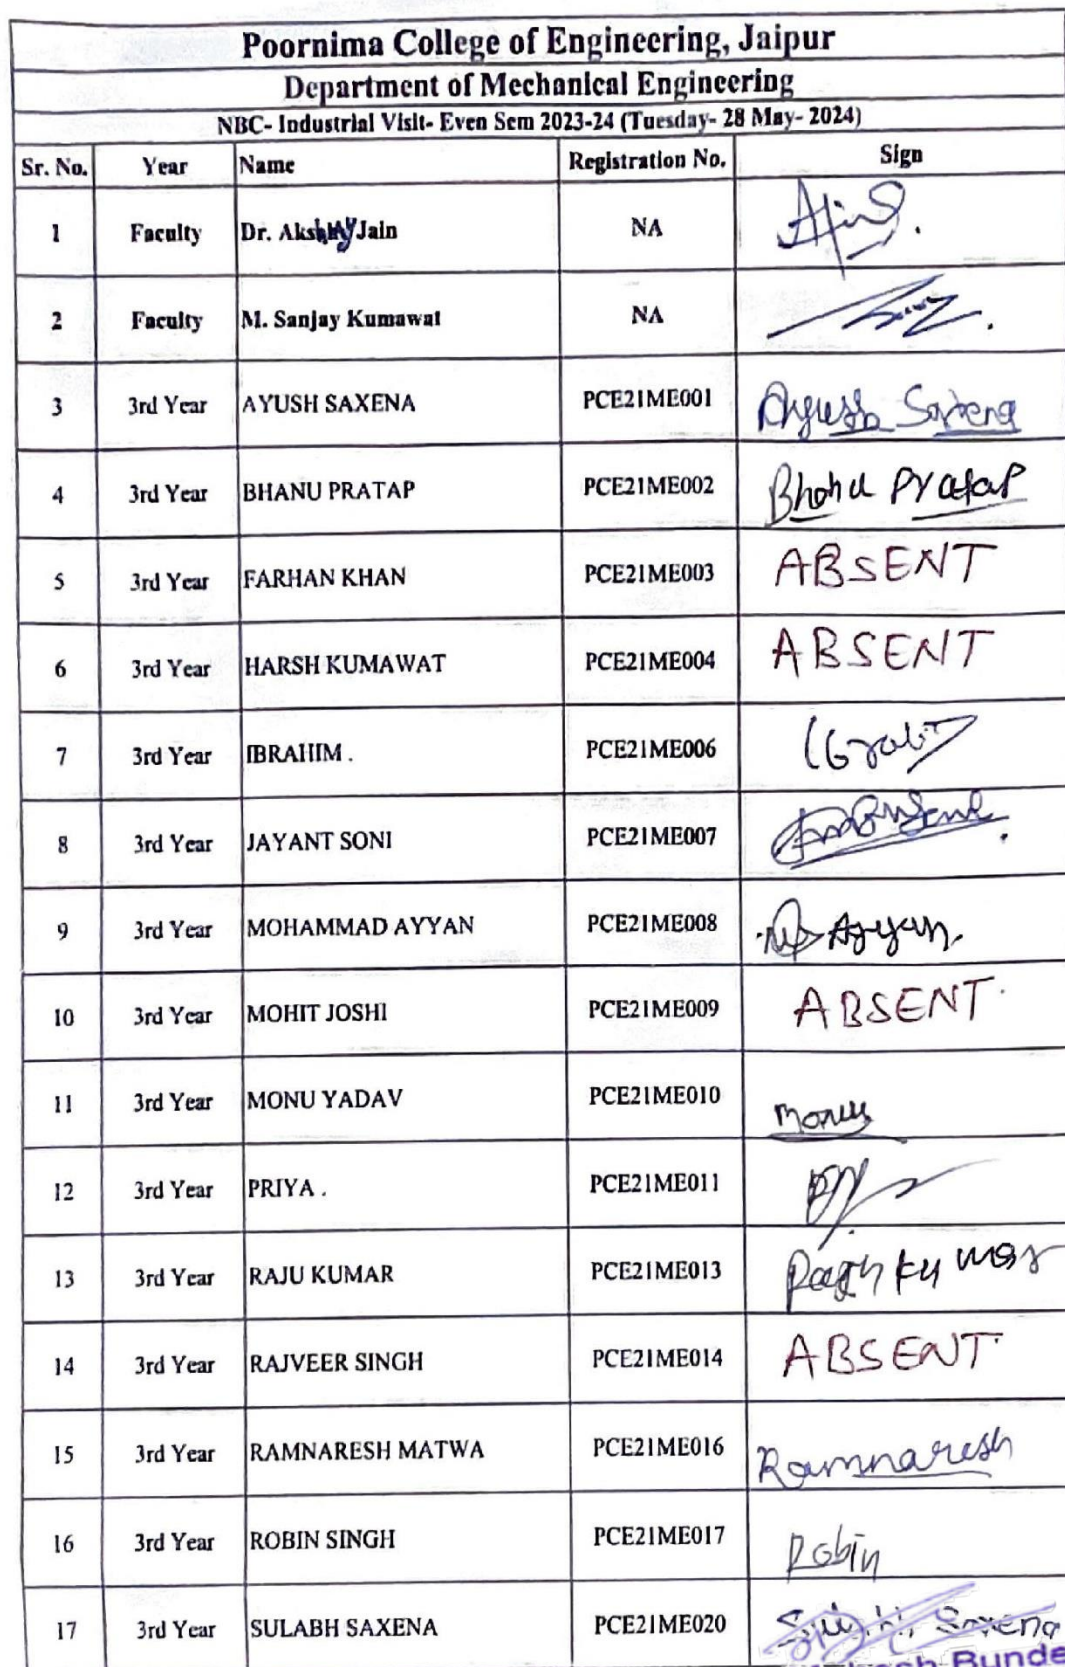 Poornima College of Engineering, Jaipur
Department of Mechanical Engineering
NBC- Industrial Visit- Even Sem 2023-24 (Tuesday- 28 May- 2024)
Sr. No. Year Name Registration No. Sign
1 Faculty Dr. Akshay Jain NA
2 Faculty M. Sanjay Kumawat NA
3 3rd Year AYUSH SAXENA PCE21ME001 Ayush Saxena
4 3rd Year BHANU PRATAP PCE21ME002 Bhanu Pratap
5 3rd Year FARHAN KHAN PCE21ME003 ABSENT
6 3rd Year HARSH KUMAWAT PCE21ME004 ABSENT
7 3rd Year IBRAHIM . PCE21ME006
8 3rd Year JAYANT SONI PCE21ME007
9 3rd Year MOHAMMAD AYYAN PCE21ME008 Ayyan.
10 3rd Year MOHIT JOSHI PCE21ME009 ABSENT
11 3rd Year MONU YADAV PCE21ME010 Monu
12 3rd Year PRIYA . PCE21ME011
13 3rd Year RAJU KUMAR PCE21ME013 Raju Kumar
14 3rd Year RAJVEER SINGH PCE21ME014 ABSENT
15 3rd Year RAMNARESH MATWA PCE21ME016 Ramnaresh
16 3rd Year ROBIN SINGH PCE21ME017 Robin
17 3rd Year SULABH SAXENA PCE21ME020 Saxena